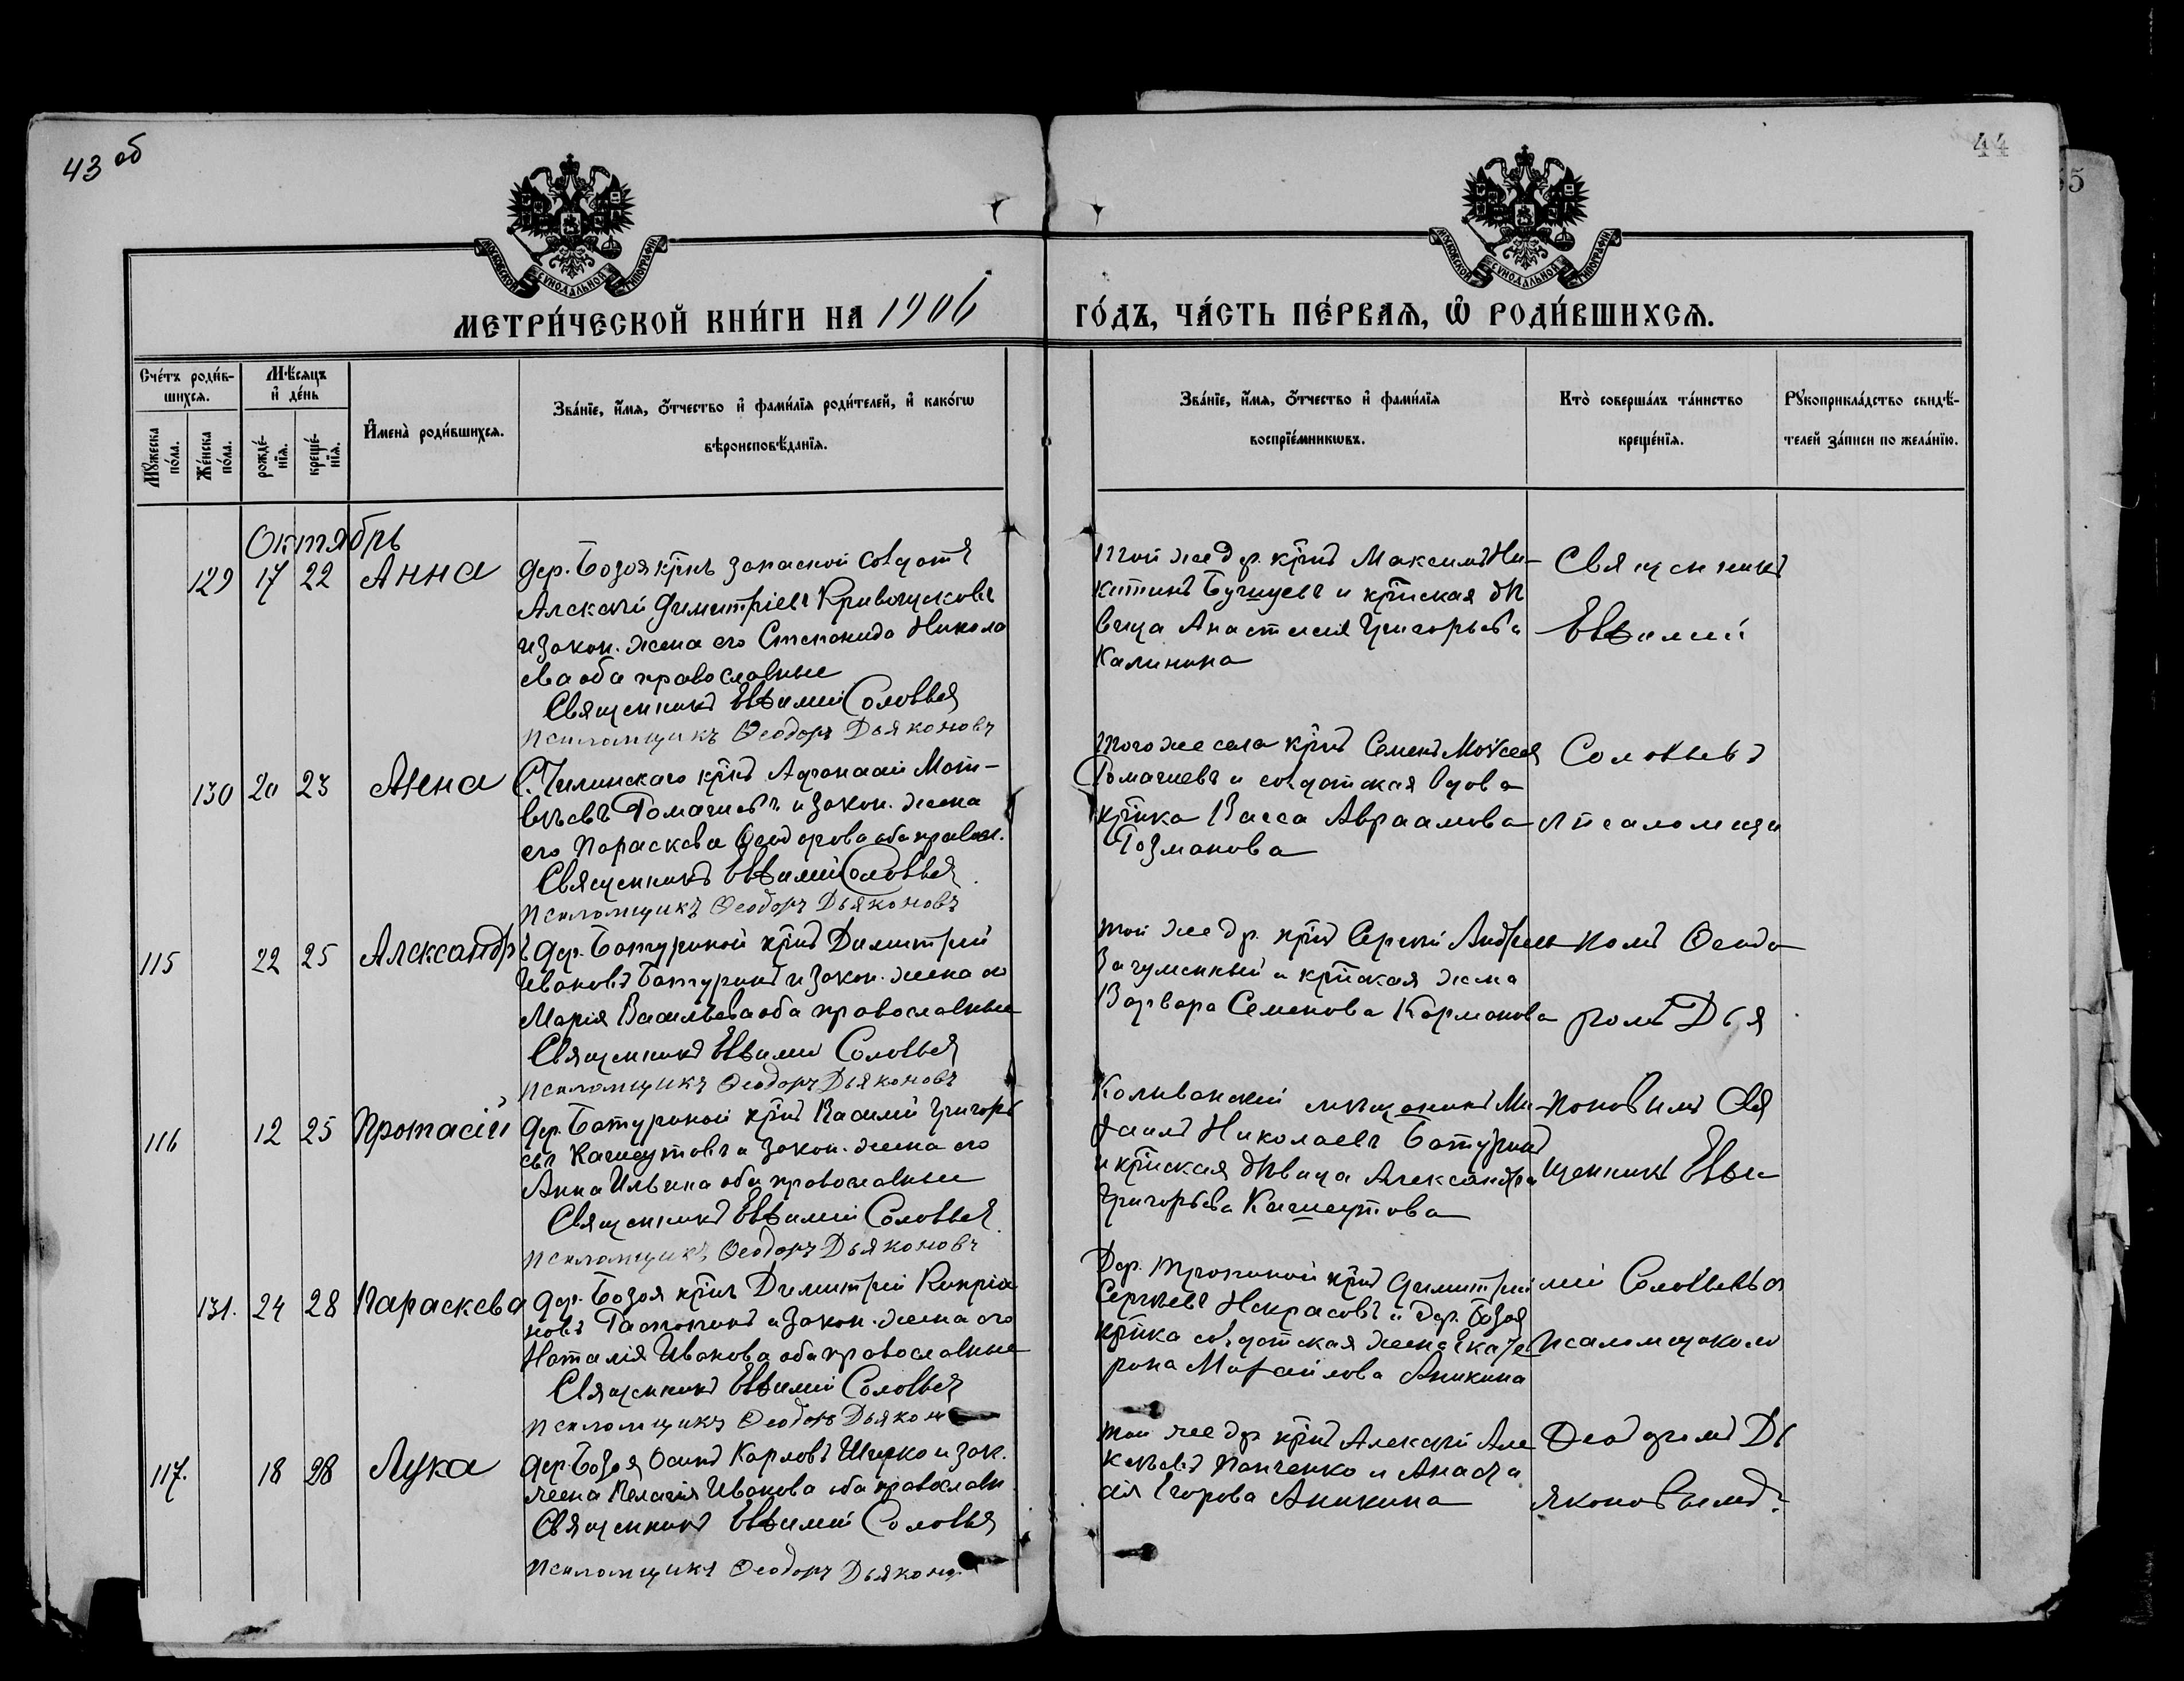 43 об
44
МОСКОВСКОЙ СУНОДАЛЬНОЙ ТИПОГРАФІИ
МОСКОВСКОЙ СУНОДАЛЬНОЙ ТИПОГРАФІИ
МЕТРИ́ЧЕСКОЙ КНИ́ГИ НА 1906 ГО́ДЪ, ЧА́СТЬ ПЕ́РВАѦ, Ѡ҆ РОДИ́ВШИХСѦ.
Счéтъ роди́в-
шихсѧ.
Мѹ́жеска по́ла.
Же́нска по́ла.
Мѣ́сѧцъ
и҆ де́нь
рожде́-
нїѧ.
креще́-
нїѧ.
И҆мена̀ роди́вшихсѧ.
Зва́нїе, и҆́мѧ, ѻ҆́тчество и҆ фами́лїѧ роди́телей, и҆ како́гѡ
вѣроисповѣ́данїѧ.
Зва́нїе, и҆́мѧ, ѻ҆́тчество и҆ фами́лїѧ
воспрїе́мникѡвъ.
Кто̀ соверша́лъ та́инство
креще́нїѧ.
Рѹкоприкла́дство свидѣ́-
телей за́писи по жела́нїю.
Октябрь
129 17 22 Анна
дер. Базоя крнъ запасной солдатъ
Алексѣй Димитріевъ
и закон. жена его Степанида Никола
ева оба православные
Священникъ Евѳимій Соловьев
Псаломщикъ Ѳеодоръ Дьяконовъ
Той же др. крнъ Максимъ Ни-
китинъ и крнская дѣ
вица Анастасія Григорьева
Калинина
Священникъ
Евѳимій
130 20 23 Анна
С. Чилинскаго крнъ Афонасій Мат-
вѣевъ Томашевъ и закон. жена
его Параскева Ѳеодорова оба правос.
Священникъ Евѳимій Соловьев
Псаломщикъ Ѳеодоръ Дьяконовъ
Того же села крнъ Семенъ Моѵсеев
Томашевъ и солдатская вдова
крнка Васса Авраамова
Соловьевъ
Псаломщи
115 22 25 Александръ
дер. Батуриной крнъ Димитрій
Ивановъ Батуринъ и закон. жена его
Марія Васильева оба православные
Священникъ Евѳимій Соловьев
Псаломщикъ Ѳеодоръ Дьяконовъ
Той же др. крнъ Сергій Андреев
и крнская жена
Варвара Семенова Карманова
комъ Ѳеодо
ромъ Дья
116 12 25 Протасій
дер. Батуриной крнъ Василій Григорь
евъ и закон. жена его
Анна Ильина оба православные
Священникъ Евѳимій Соловьев
Псаломщикъ Ѳеодоръ Дьяконовъ
Колыванскій мѣщанинъ Ми-
хаилъ Николаевъ Батуринъ
и крнская дѣвица Александра
Григорьева
коновымъ Свя
щенникъ Евѳи
131. 24 28 Параскева
дер. Базоя крнъ Димитрій Кипріа
новъ и закон. жена его
Наталія Иванова оба православные
Священникъ Евѳимій Соловьев
Псаломщикъ Ѳеодоръ Дьякон
Дер. крнъ Димитрій
Сергѣевъ Некрасовъ и дер. Базоя
крнка солдатская жена Екате
рина Михайлова Аникина
мій Соловьевъ
Псаломщикомъ
117. 18 28 Лука
дер. Базоя Осипъ Карловъ и зак.
жена Пелагія Иванова оба православн
Священникъ Евѳимій Соловьев
Псаломщикъ Ѳеодоръ Дьяконо
Той же др крнъ Алексѣй Але
ксѣевъ Панченко и Анаста
сія Егорова Аникина
Ѳеодоромъ Дь
яконовымъ